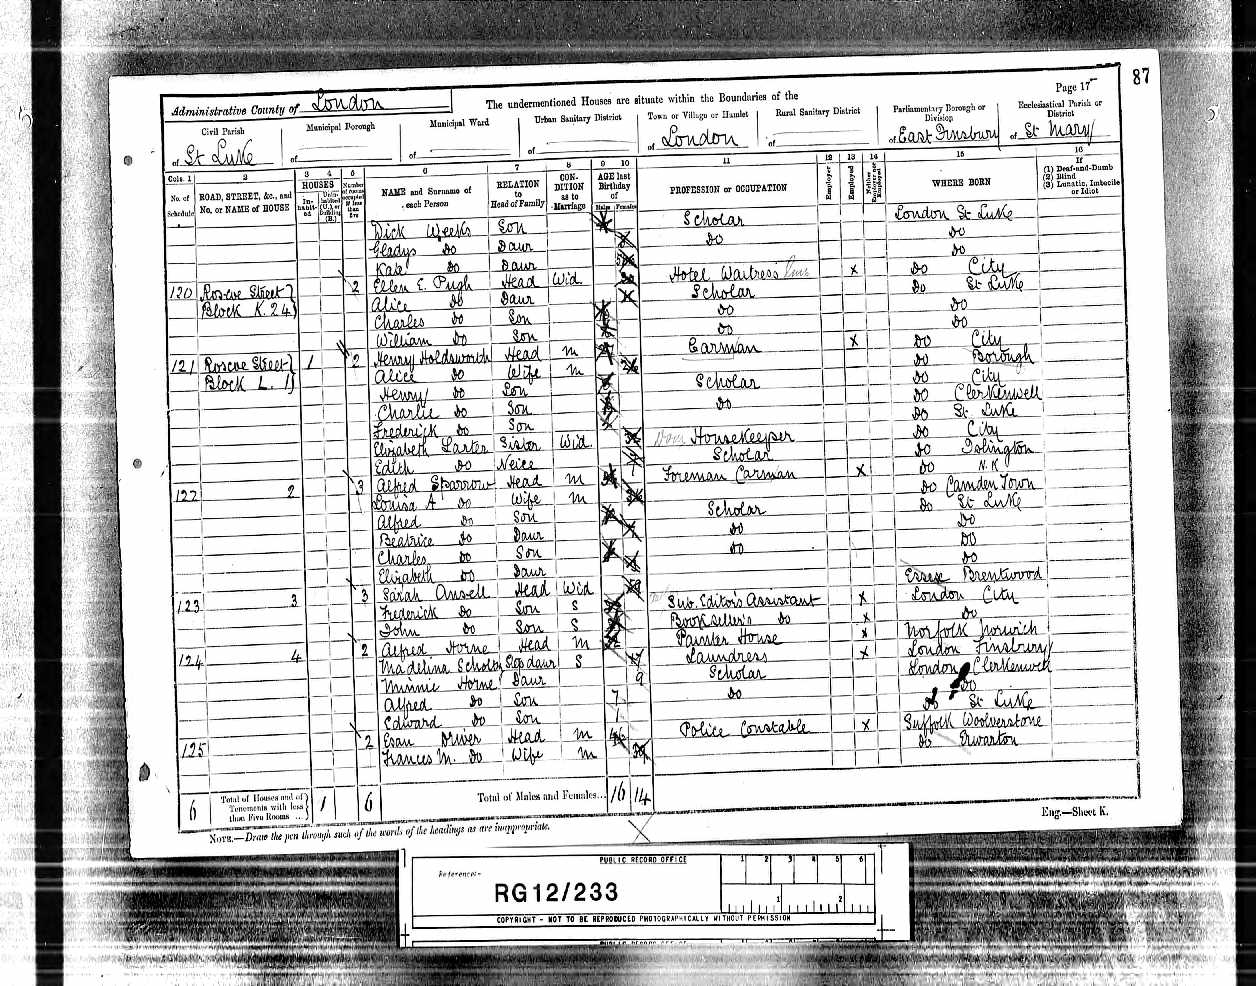 87
Page 17
Administrative County of London
The undermentioned Houses are situate within the Boundaries of the
Civil Parish
of St Luke
Municipal Borough
of
Municipal Ward
of
Urban Sanitary District
of
Town or Village or Hamlet
of London
Rural Sanitary District
of
Parliamentary Borough or Division
of East Finsbury
Ecclesiastical Parish or District
of St Mary
Cols. 1 2 3 4 5 6 7 8 9 10 11 12 13 14 15 16
No. of Schedule
ROAD, STREET, &c., and No. or NAME of HOUSE
HOUSES
In-habit-ed
Unin-habited (U.), or Building (B.)
Number of rooms occupied if less than five
NAME and Surname of each Person
RELATION to Head of Family
CON-DITION as to Marriage
AGE last Birthday of
Males Females
PROFESSION or OCCUPATION
Employer
Employed
Neither Employer nor Employed
WHERE BORN
If
(1) Deaf-and-Dumb
(2) Blind
(3) Lunatic, Imbecile or Idiot
Dick Weeks Son Scholar London St Luke
Gladys Do Daur Do Do
Kate Do Daur Do
120 Roscoe Street Block K. 24 2 Ellen E. Pugh Head Wid. Hotel Waitress x Do City
Alice Do Daur Scholar Do St Luke
Charles Do Son Do Do
William Do Son Do Do
121 Roscoe Street Block L. 1 1 2 Henry Holdsworth Head M Carman x Do City
Alice Do Wife M Do Borough
Henry Do Son Scholar Do City
Charlie Do Son Do Do Clerkenwell
Frederick Do Son Do St Luke
Elizabeth Larter Sister Wid. Housekeeper Do City
Edith Do Neice Scholar Do Islington
122 2 3 Alfred Sparrow Head M Foreman Carman x Do N.K
Louisa A Do Wife M Do Camden Town
Alfred Do Son Scholar Do St Luke
Beatrice Do Daur Do Do
Charles Do Son Do Do
Elizabeth Do Daur Do
123 3 3 Sarah Ansell Head Wid Essex Brentwood
Frederick Do Son S Sub. Editor's Assistant x London City
John Do Son S Bookseller's Do x Do
124 4 2 Alfred Horne Head M Painter House x Norfolk Norwich
Madelina Step daur S Laundress x London Finsbury
Minnie Horne Daur 9 Scholar London Clerkenwell
Alfred Do Son 7 Do Do
Edward Do Son 1 Do St Luke
125 2 Esau Driver Head M Police Constable x Suffolk Woolverstone
Frances M. Do Wife M Do Erwarton
6 Total of Houses and of Tenements with less than Five Rooms 1 6 Total of Males and Females... 16 14
NOTE.—Draw the pen through such of the words of the headings as are inappropriate.
Eng.—Sheet K.
PUBLIC RECORD OFFICE
1 2 3 4 5 6
Reference:-
RG12/233
1 2
COPYRIGHT - NOT TO BE REPRODUCED PHOTOGRAPHICALLY WITHOUT PERMISSION